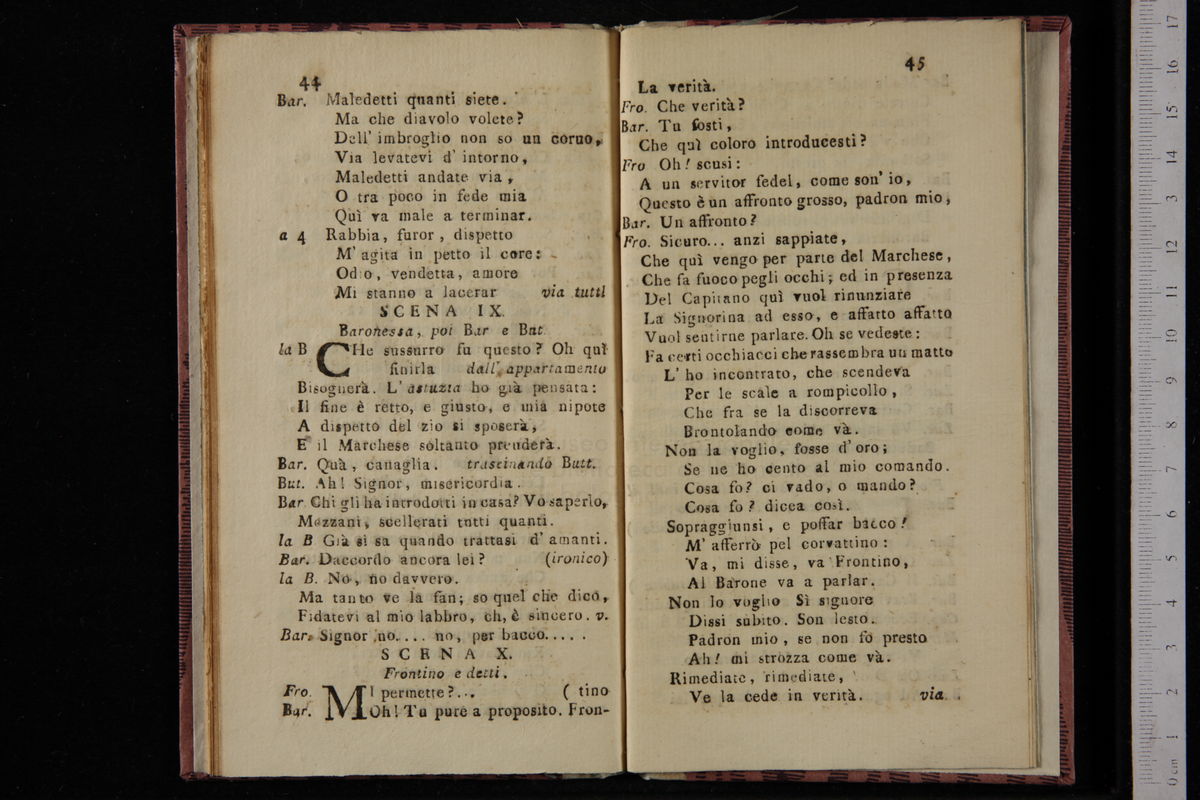 44
Bar. Maledetti quanti siete.
Ma che diavolo volete?
Dell' imbroglio non so un corno,
Via levatevi d' intorno,
Maledetti andate via,
O tra poco in fede mia
Quì va male a terminar.
a 4 Rabbia, furor, dispetto
M' agita in petto il core:
Odio, vendetta, amore
Mi stanno a lacerar via tutti
SCENA IX.
Baronessa, poi Bar e But.
la B CHe sussurro fu questo? Oh quì
finirla dall' appartamento
Bisognerà. L' astuzia ho già pensata:
Il fine è retto, e giusto, e mia nipote
A dispetto del zio si sposerà,
E il Marchese soltanto prenderà.
Bar. Quà, canaglia. trascinando Butt.
But. Ah! Signor, misericordia.
Bar Chi gli ha introdotti in casa? Vo saperlo,
Mezzani, scellerati tutti quanti.
la B Già si sa quando trattasi d' amanti.
Bar. Daccordo ancora lei? (ironico)
la B. No, no davvero.
Ma tanto ve la fan; so quel che dico,
Fidatevi al mio labbro, eh, è sincero. v.
Bar. Signor no.... no, per bacco.....
SCENA X.
Frontino e detti.
Fro. MI permette?... ( tino
Bar. Oh! Tu pure a proposito. Fron-
45
La verità.
Fro. Che verità?
Bar. Tu fosti,
Che quì coloro introducesti?
Fro Oh! scusi:
A un servitor fedel, come son' io,
Questo è un affronto grosso, padron mio,
Bar. Un affronto?
Fro. Sicuro... anzi sappiate,
Che quì vengo per parte del Marchese,
Che fa fuoco pegli occhi; ed in presenza
Del Capitano quì vuol rinunziare
La Signorina ad esso, e affatto affatto
Vuol sentirne parlare. Oh se vedeste:
Fa certi occhiacci che rassembra un matto
L' ho incontrato, che scendeva
Per le scale a rompicollo,
Che fra se la discorreva
Brontolando come và.
Non la voglio, fosse d' oro;
Se ne ho cento al mio comando.
Cosa fo? ci vado, o mando?
Cosa fo? dicea così.
Sopraggiunsi, e poffar bacco!
M' afferrò pel corvattino:
Va, mi disse, va Frontino,
Al Barone va a parlar.
Non lo voglio Sì signore
Dissi subito. Son lesto.
Padron mio, se non fo presto
Ah! mi strozza come và.
Rimediate, rimediate,
Ve la cede in verità. via.